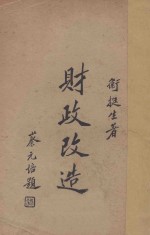 衛挺生著
財政改造
蔡元培題